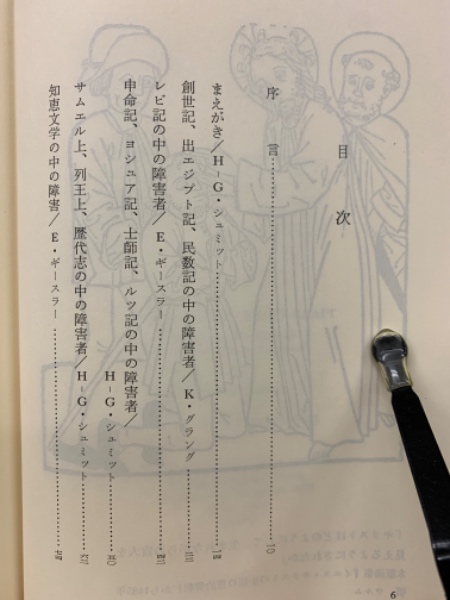 目次
序言……10
まえがき／H-G・シュミット
創世記、出エジプト記、民数記の中の障害者／K・グラング
レビ記の中の障害者／E・ギースラー
申命記、ヨシュア記、士師記、ルツ記の中の障害者／
H-G・シュミット
サムエル上、列王上、歴代志の中の障害者／H-G・シュミット
知恵文学の中の障害／E・ギースラー
6